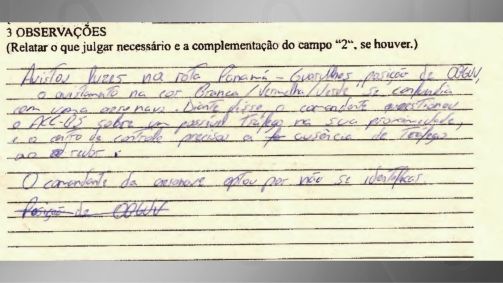 3 OBSERVAÇÕES
(Relatar o que julgar necessário e a complementação do campo "2", se houver.)
Avistou luzes na rota Panamá - Guarulhos, posição de OGUV,
o avistamento na cor Branca / Vermelha / Verde se confundia
com uma aeronave. Diante disso o comandante questionou
o ACC-03 sobre um possível Tráfego na sua proximidade,
e o centro de controle precisou a ausência de Tráfego
ao redor.
O comandante da aeronave optou por não se identificar.
Posição de OGUV